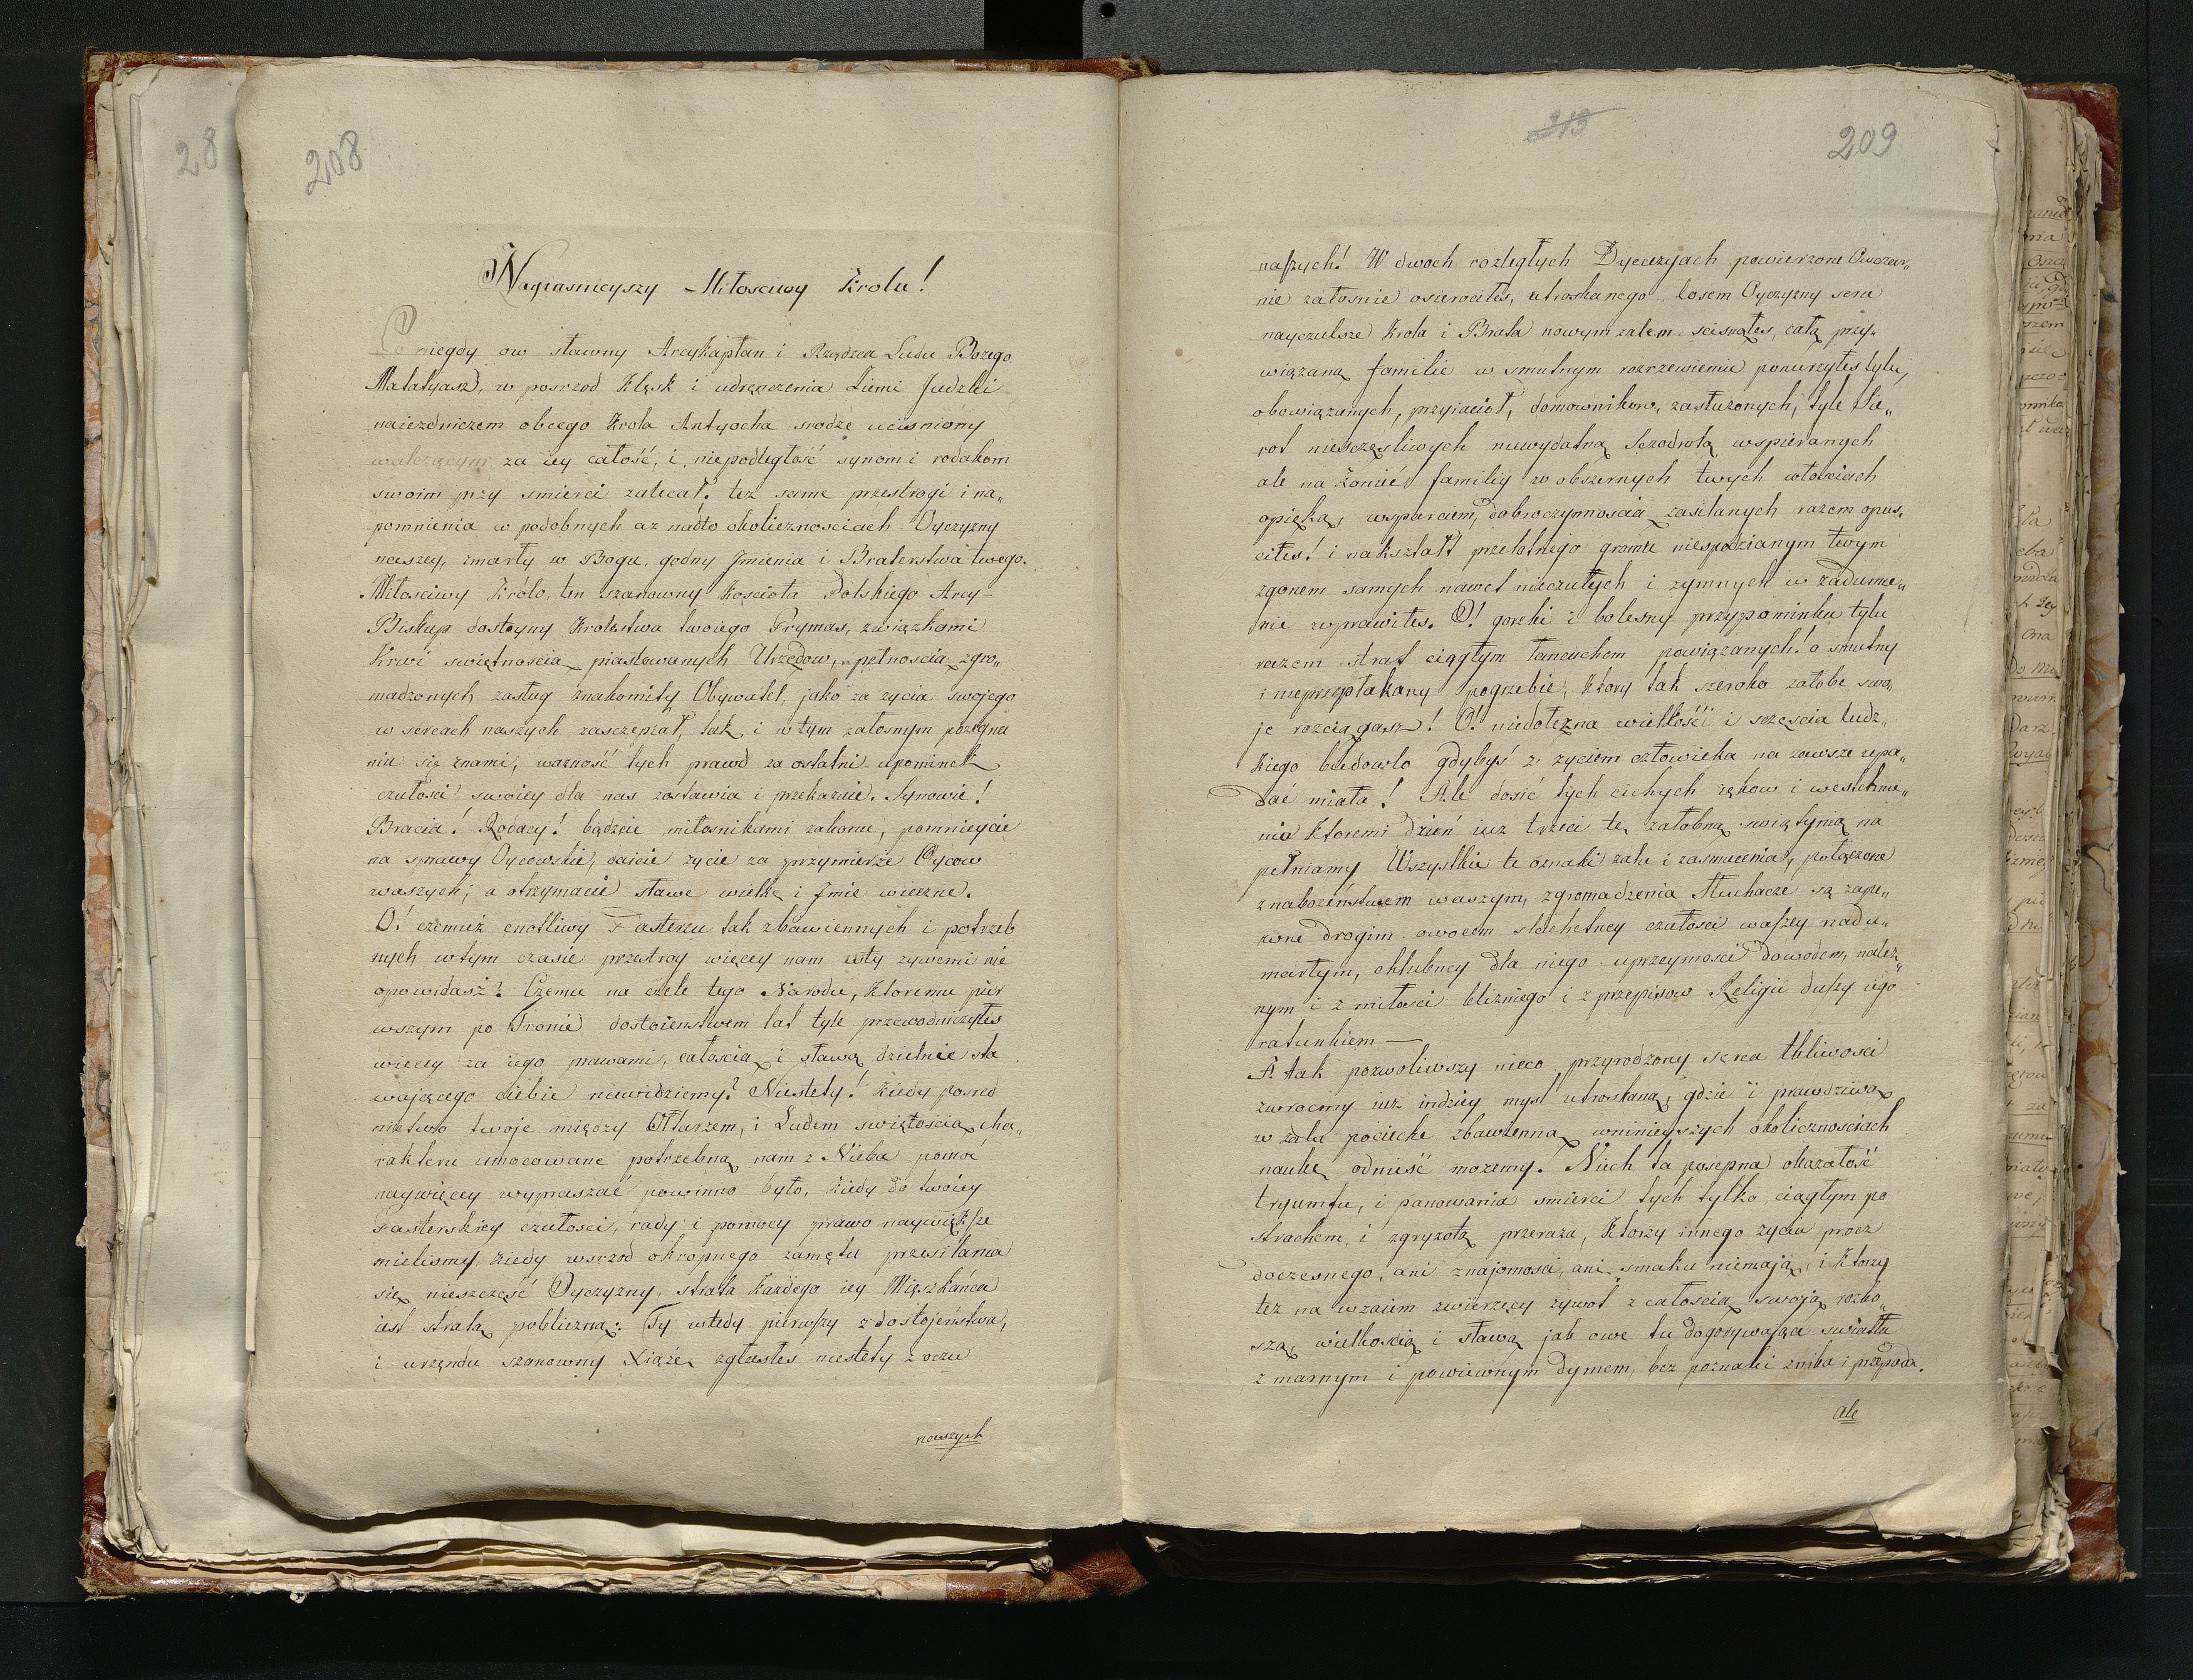 208
Nayiasnieyszy Miłosciwy Krolu!
Co niegdy ow sławny Arcykapłan i Rządzca Ludu Bozego
Matatyasz, w posrzod klęsk i udręczenia Ziemi Judzki
naiezdniczem obcego Krola Antyocha srodze ucisniony
walczącym za iey całość, i niepodległość synom i rodakom
swoim przy smierci zalecał, też same przestrogi i na„
pomnienia w podobnych az nadto okolicznosciach Oyczyzny
naszey, zmarły w Bogu, godny Jmienia i Braterstwa twego
Miłosciwy Królo, ten szanowny Kościoła Polskiego Arcy-
Biskup dostoyny Krolestwa twoiego Prymas, związkami
Krwi swiętnoscią piastowanych Urzędow, pełnoscią zgro„
madzonych zasług znakomity Obywatel, jako za zycia swojego
w sercach naszych zasczepiał, tak i w tym załosnym pozegna
niu się znami, wazność tych prawd za ostatni upominek
czułosci swoiey dla nas zostawia i przekazuie. Synowie!
Bracia! Rodacy! bądzcie miłosnikami zakonu, pomnieycie
na sprawy Oycowskie, daicie zycie za przymierze Oycow
waszych; a otrzymacie sławe wielką i Jmie wieczne.
O! czemuż cnotliwy Pasterzu tak zbawiennych i potrzeb
nych wtym czasie przestrog więcey nam usty zywemi nie
opowidasz? Czemu na czele tego Narodu, ktoremu pier
wszym po Tronie dostoienstwem lat tyle przewodniczyłes
wiecey za iego prawami, całoscią i sławą dzielnie sta
wającego ciebie niewidziemy? Niestety! kiedy posred
nictwo twoje między Ołtarzem, i Ludem swiętoscią cha„
rakteru umocowane potrzebną nam z Nieba pomoc
naywięcey wypraszać powinno było, kiedy do twoiey
Pasterskiey czułosci, rady i pomocy prawo naywiększe
mielismy kiedy wsrzod okropnego zamętu przesilania
się nieszczęść Oyczyzny, strata każdego iey Mieszkańca
iest stratą pobliczną: Ty wtedy pierwszy z dostojeństwa,
i urzędu szanowny Xiąże zgłasłes niestety z oczu
naszych
213
209
naszych! W dwoch rozległych Dyecezyach powierzone Owczar„
nie załosnie osierociłes, utroskanego losem Oyczyzny serce
nayczulsze Krola i Brata nowym zalem scisnąłes, całą przy„
wiązaną familie w smutnym rozrzewieniu ponurzyłes tylu,
obowiązanych, przyiacioł, domownikow, zasłużonych, tyle Sie„
rot niesczęsliwych niewydatną sczodrotą wspieranych
ale na łonić familiy w obszernych twych włosciach
opieką, wsparciem, dobroczynnoscią zasilanych razem opus„
ciłes! i nakształt przelotnego gromu niespodzianym twym
zgonem samych nawet nieczułych i zymnych w zadumie„
nie wprawiłes. O! gorzki i bolesny przypominku tylu
razem strat ciągłym łancuchem powiązanych! o smutny
i nieprzepłakany pogrzebie, ktory tak szeroko załobe swo„
je rozciągasz! O! niedołężna wielkości i szczęscia ludz„
kiego budowlo gdybyś z zyciem człowieka na zawsze upa„
dać miała! Ale dosić tych cichych ięków i westchnie„
nia ktoremi dzień iuz trzeci te załobną swiątynią na
pełniamy Wszystkie te oznaki zalu i zasmucenia, połączone
z nabożeństwem waszym, zgromadzenia Słuchacze są zape„
wne drogim owocem slachetney czułosci waszey nad u„
marłym, chlubney dla niego uprzeymosci dowodem, nalez„
nym i z miłosci blizniego i z przepisow Religii duszy iego
ratunkiem —
A tak pozwoliwszy nieco przyrodzoney serca tkliwosci
zwrocmy iuz indziey mysl utroskaną, gdzie i prawdziwą
w zalu pocieche zbawienną wninieyszych okolicznosciach
naukę odnieść mozemy. Niech ta posepna okazałość
tryumfu, i panowania smierci tych tylko ciągłym po
strachem, i zgryzotą przeraza, ktorzy innego zycia procz
doczesnego, ani znajomosci, ani smaku niemają, i ktorzy
tez na wzaiem zwierzęcy zywot z całoscią swoją rozko„
szą, wielkoscią i sławą jak owe tu dogorywające swiatła
z marnym i powiewnym dymem, bez poznaki znika i przepada.
ale